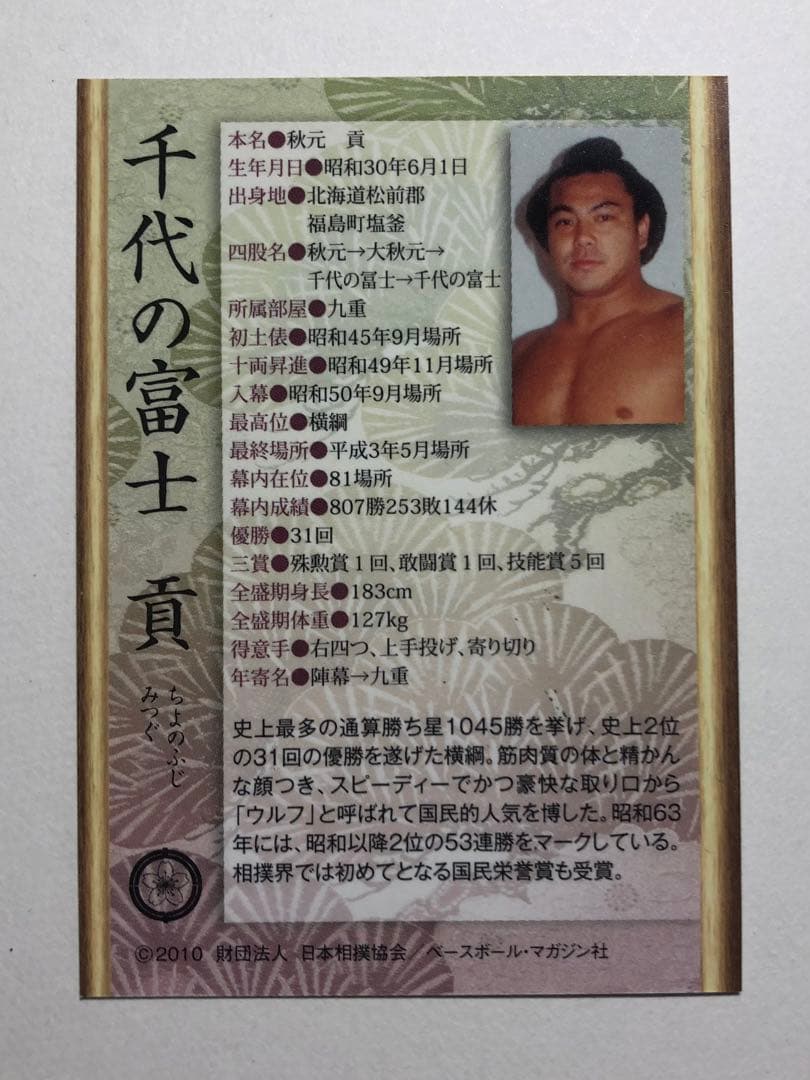 千代の富士 貢
ちよのふじ
みつぐ
本名●秋元 貢
生年月日●昭和30年6月1日
出身地●北海道松前郡
福島町塩釜
四股名●秋元→大秋元→
千代の冨士→千代の富士
所属部屋●九重
初土俵●昭和45年9月場所
十両昇進●昭和49年11月場所
入幕●昭和50年9月場所
最高位●横綱
最終場所●平成3年5月場所
幕内在位●81場所
幕内成績●807勝253敗144休
優勝●31回
三賞●殊勲賞1回、敢闘賞1回、技能賞5回
全盛期身長●183cm
全盛期体重●127kg
得意手●右四つ、上手投げ、寄り切り
年寄名●陣幕→九重
史上最多の通算勝ち星1045勝を挙げ、史上2位
の31回の優勝を遂げた横綱。筋肉質の体と精かん
な顔つき、スピーディーでかつ豪快な取り口から
「ウルフ」と呼ばれて国民的人気を博した。昭和63
年には、昭和以降2位の53連勝をマークしている。
相撲界では初めてとなる国民栄誉賞も受賞。
©2010 財団法人 日本相撲協会／ベースボール・マガジン社